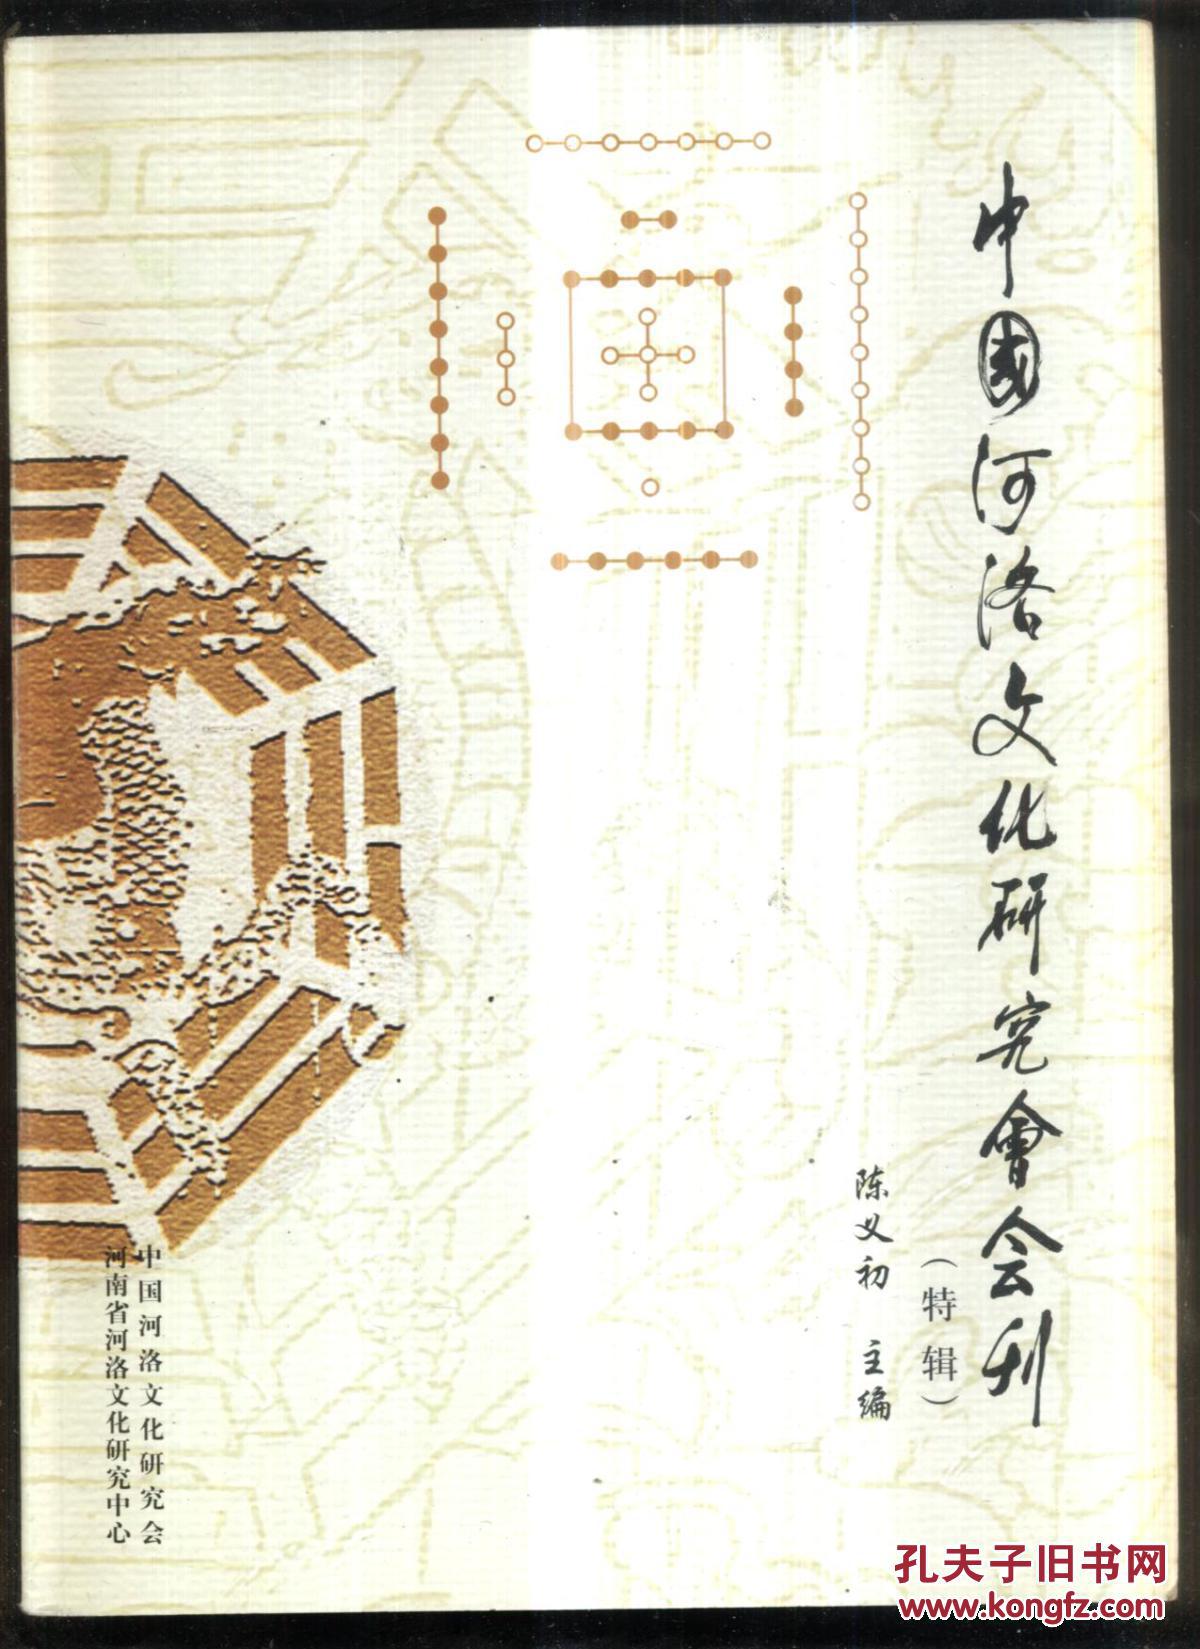 中國河洛文化研究會会刊
（特辑）
陈义初 主编
中国河洛文化研究会
河南省河洛文化研究中心
孔夫子旧书网
www.kongfz.com